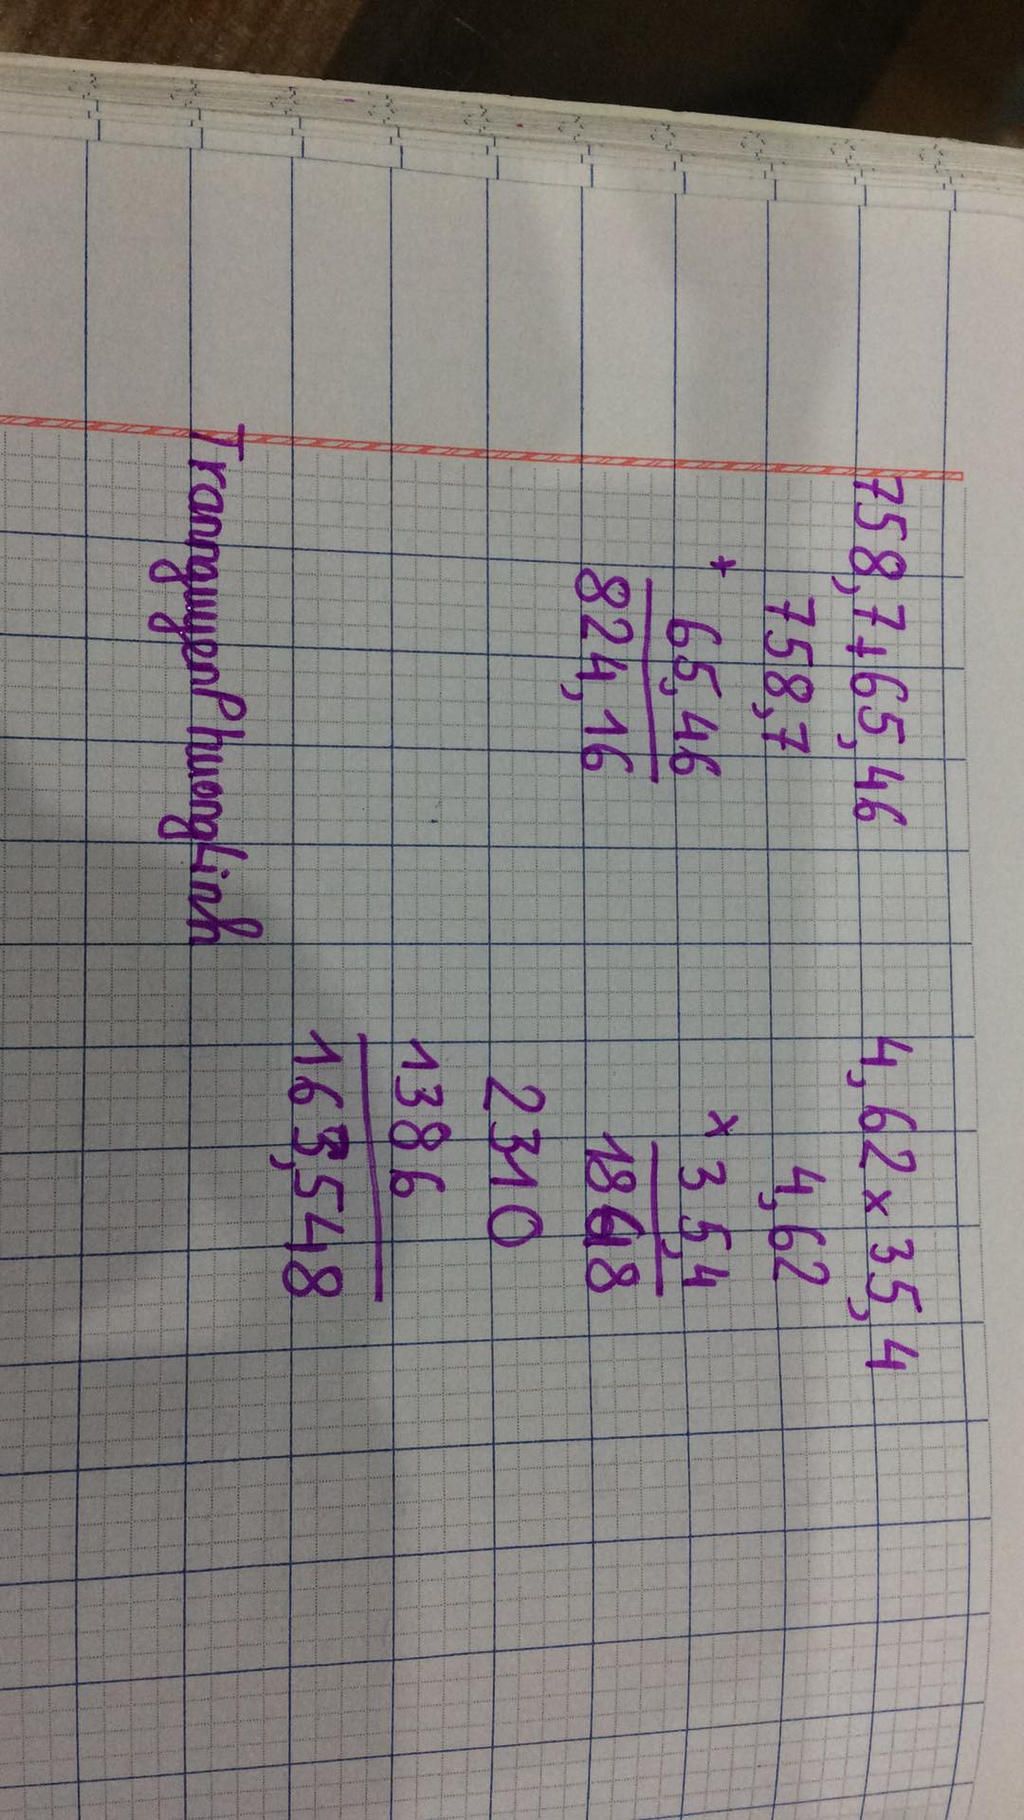 758,7+65,46
758,7
+
65,46
824,16
4,62×35,4
4,62
×
35,4
1848
2310
1386
163,548
TrannguyenPhuongLinh